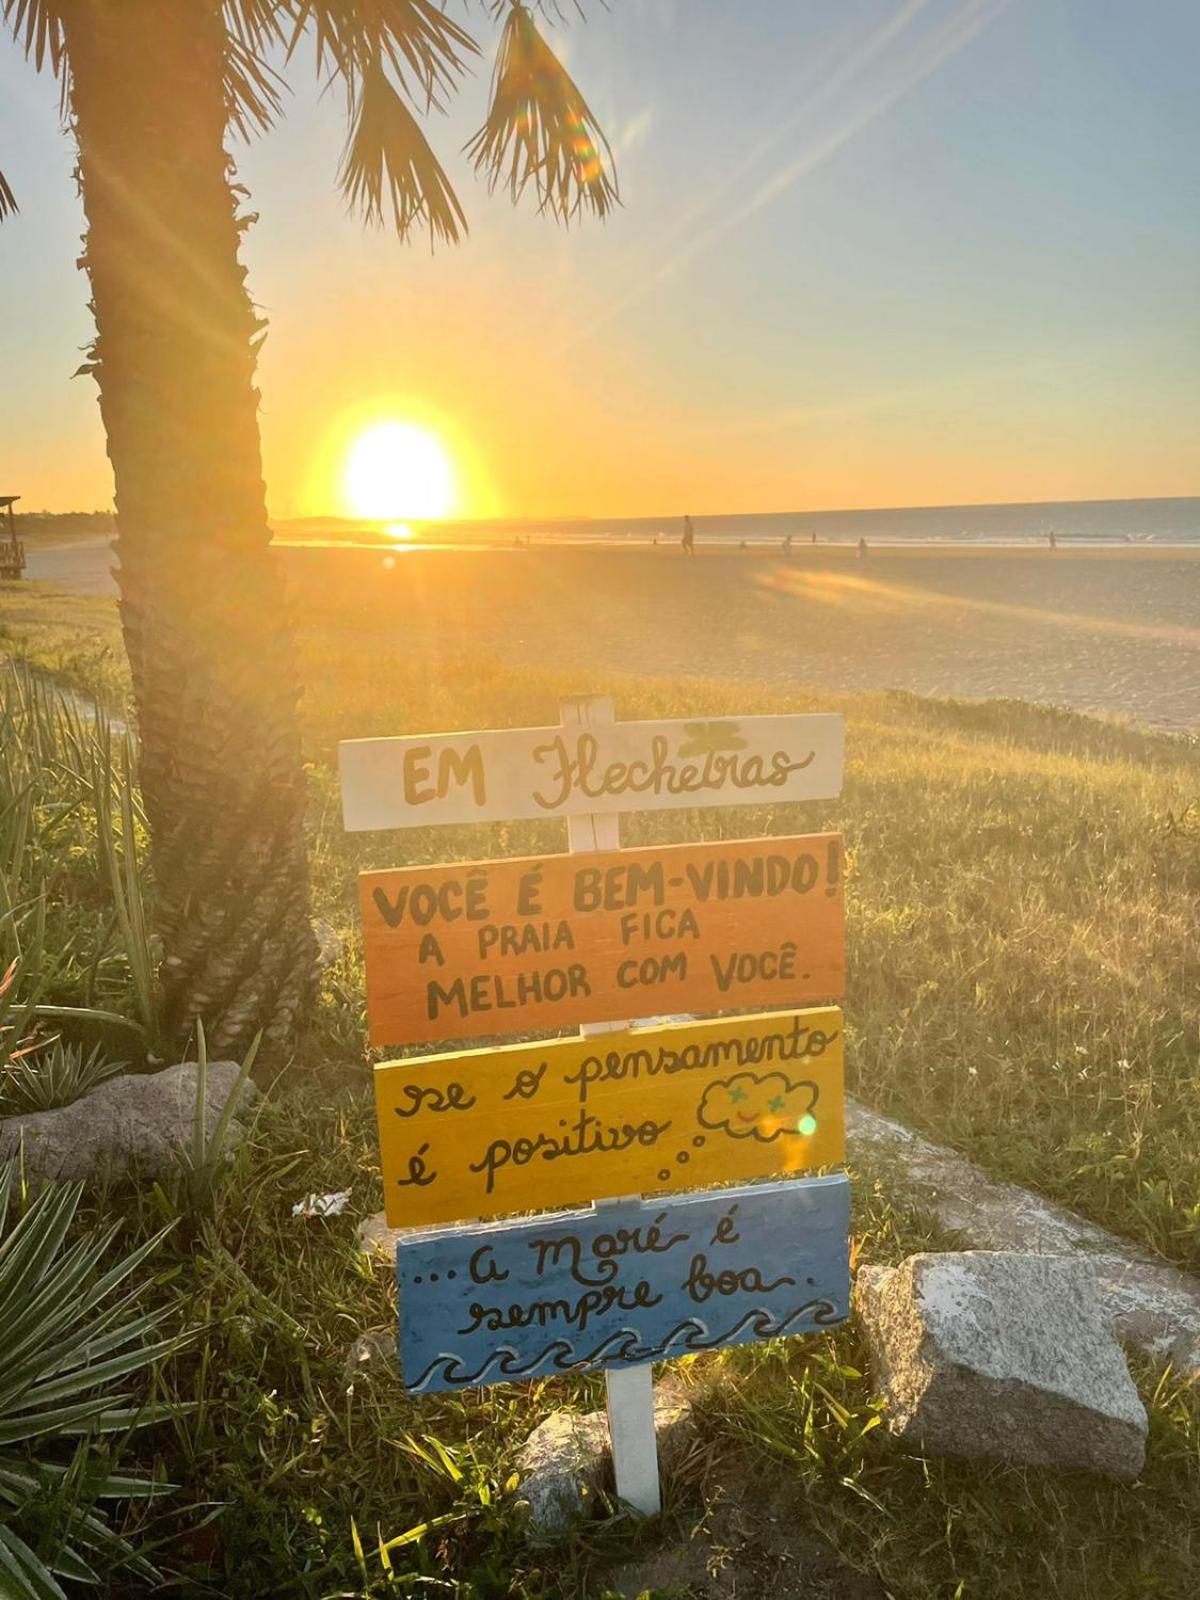 EM Flecheiras
VOCÊ É BEM-VINDO!
A PRAIA FICA
MELHOR COM VOCÊ.
se o pensamento
é positivo
...a maré é
sempre boa.